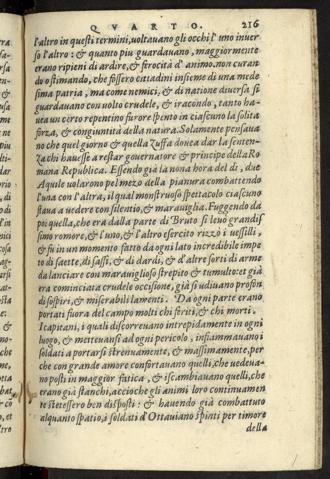 QVARTO. 216
l'altro in questi termini, voltauano gli occhi l'uno inuer
so l'altro: & quanto piu guardauano, maggiormente
erano ripieni di ardire, & ferocità d'animo, non curan
do o stimando, che fossero cittadini insieme di una mede
sima patria, ma come nemici, & di natione diuersa si
guardauano con uolto crudele, & iracondo, tanto ha
uea un certo repentino furore spento in ciascuno la solita
forza, & congiuntità della natura. Solamente pensaua
no che quel giorno & quella Zuffa douea dar la senten
Za chi hauesse a restar gouernatore & principe della Ro
mana Republica. Essendo già la nona hora del di, due
Aquile uolarono pel mezo della pianura combattendo
l'una con l'altra, il qual monstruoso spettacolo ciascuno
staua a uedere con silentio, & marauiglia. Fuggendo da
poi quella, che era dalla parte di Bruto si leuò grandis
simo romore, & l'uno, & l'altro esercito rizzò i uessilli,
& fu in un momento fatto da ogni lato incredibile impe
to di saette, di sassi, & di dardi, & d'altre sorti di arme
da lanciare con marauiglioso strepito & tumulto: et già
era cominciata crudele occisione, già si udiuano profon
di sospiri, & miserabili lamenti. Da ogni parte erano
portati fuora del campo molti chi feriti, & chi morti.
I capitani, i quali discorreuano intrepidamente in ogni
luogo, & metteuansi ad ogni pericolo, infiammauano i
soldati a portarsi strenuamente, & massimamente, per
che con grande amore confortauano quelli, che uedeua-
no posti in maggior fatica, & iscambiauano quelli, che
erano già stanchi, accioche gli animi loro continuamen
te stetessero ben disposti: & hauendo già combattuto
alquanto spatio, i soldati d'Ottauiano spinti per timore
della